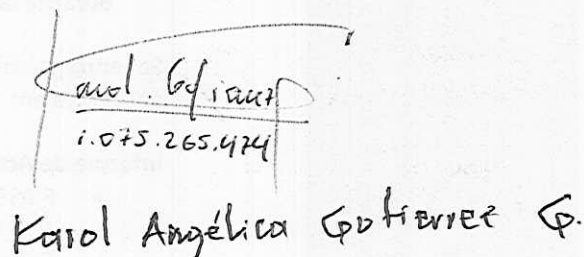 Karol Gutierrez
1.075.265.474
Karol Angélica Gutierrez G.